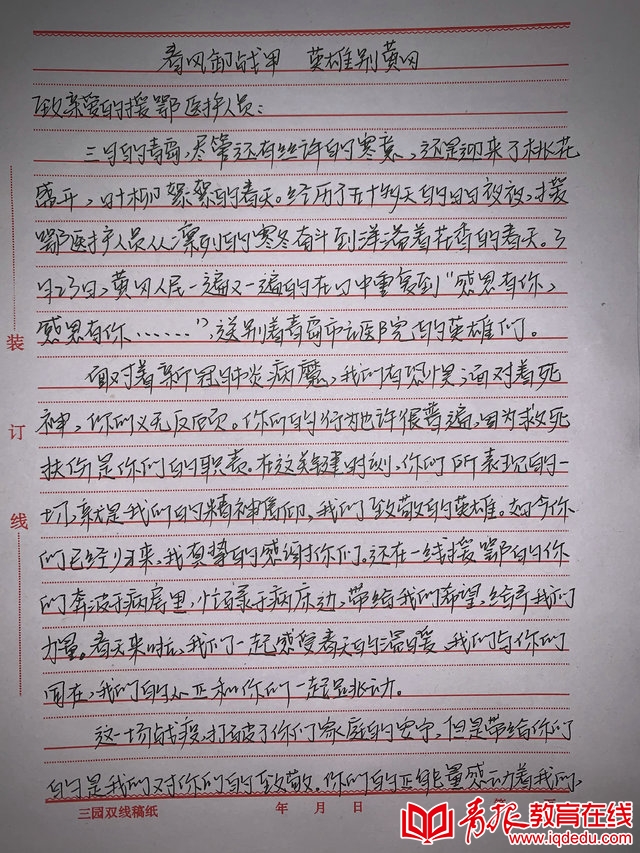 春风卸战甲 英雄别黄冈
致亲爱的援鄂医护人员：
三月的青岛，尽管还有些许的寒意，还是迎来了桃花
盛开，叶柳絮絮的春天。经历了五十多天的日日夜夜，援
鄂医护人员从凛冽的寒冬奋斗到洋溢着花香的春天。3
月23日，黄冈人民一遍又一遍的在口中重复到“感恩有你，
感恩有你……”，送别着青岛市立医院的英雄们。
面对着新冠肺炎病魔，我们有恐惧；面对着死
神，你们义无反顾。你们的行为也许很普遍，因为救死
扶伤是你们的职责。在这关键时刻，你们所表现的一
切，就是我们的精神信仰，我们致敬的英雄。如今你
们已经归来，我真挚的感谢你们。还在一线援鄂的你
们奔波于病房里，忙碌于病床边，带给我们希望，给予我们
力量。春天来时，我们一起感受春天的温暖，我们与你们
同在，我们的心正和你们一起跳动。
这一场战疫，打破了你们家庭的安宁，但是带给你们
的是我们对你们的致敬。你们的正能量感动着我们，
装
订
线
三园双线稿纸 年 月 日 第
青报教育在线
www.iqdedu.com